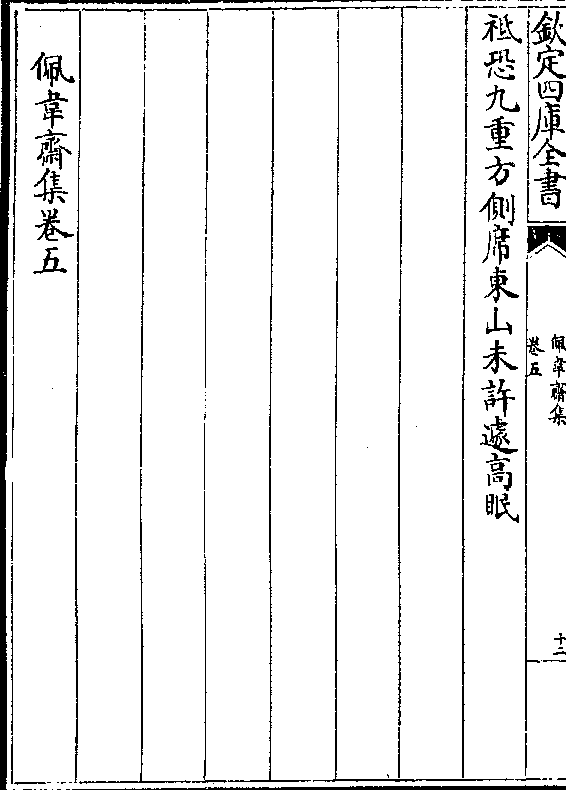 欽定四庫全書
佩韋齋集
卷五
十二
祗恐九重方側席東山未許遽高眠
佩韋齋集卷五